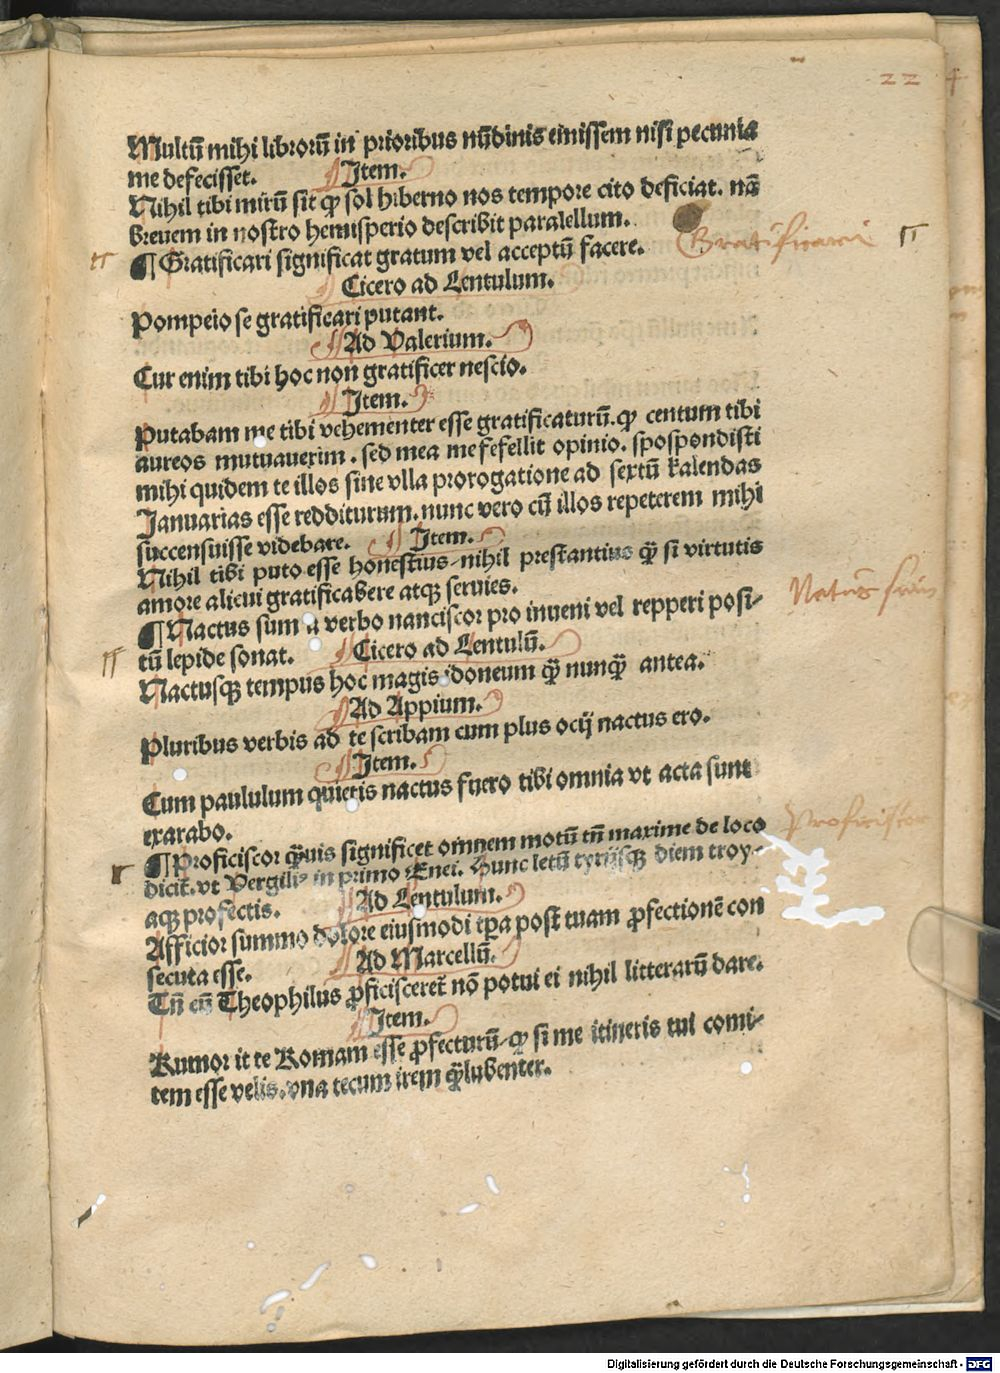 22 +
Multū mihi librorū in prioribus nūdinis emissem nisi pecunia
me defecisset. ¶ Item.
Nihil tibi mirū sit ꝙ sol hiberno nos tempore cito deficiat. nā
breuem in nostro hemisperio describit paralellum.
¶ Gratificari significat gratum vel acceptū facere.
Gratificari
Cicero ad Lentulum.
Pompeio se gratificari putant.
¶ Ad Valerium.
Cur enim tibi hoc non gratificer nescio.
¶ Item.
Putabam me tibi vehementer esse gratificaturū. ꝙ centum tibi
aureos mutuauerim. sed mea me fefellit opinio. spospondisti
mihi quidem te illos sine vlla prorogatione ad sextū kalendas
Januarias esse redditurum. nunc vero cū illos repeterem mihi
succensuisse videbare. ¶ Item.
Nihil tibi puto esse honestius. nihil prestantius ꝙ̄ si virtutis
amore alicui gratificabere atqꝫ seruies.
¶ Nactus sum a verbo nanciscor pro inueni vel repperi posi-
Natus sum
tū lepide sonat. ¶ Cicero ad Lentulū.
Nactusqꝫ tempus hoc magis idoneum ꝙ̄ nunꝙ̄ antea.
¶ Ad Appium.
Pluribus verbis ad te scribam cum plus ocij nactus ero.
¶ Item.
Cum paululum quietis nactus fuero tibi omnia vt acta sunt
exarabo.
¶ Proficiscor ꝙ̄uis significet omnem motū tn̄ maxime de loco
Proficiscor
dicit̄. vt Vergiliꝰ in primo Enei. Hunc letū tyrijsqꝫ diem troy-
aqꝫ profectis. ¶ Ad Lentulum.
Afficior summo dolore eiusmodi tꝑa post tuam ꝓfectionē con
secuta esse. ¶ Ad Marcellū.
Tn̄ cū Theophilus ꝓficisceret̄ nō potui ei nihil litterarū dare.
¶ Item.
Rumor it te Romam esse ꝓfecturū. ꝙ si me itineris tui comi-
tem esse velis. vna tecum irem ꝙ̄lubenter.
Digitalisierung gefördert durch die Deutsche Forschungsgemeinschaft - DFG